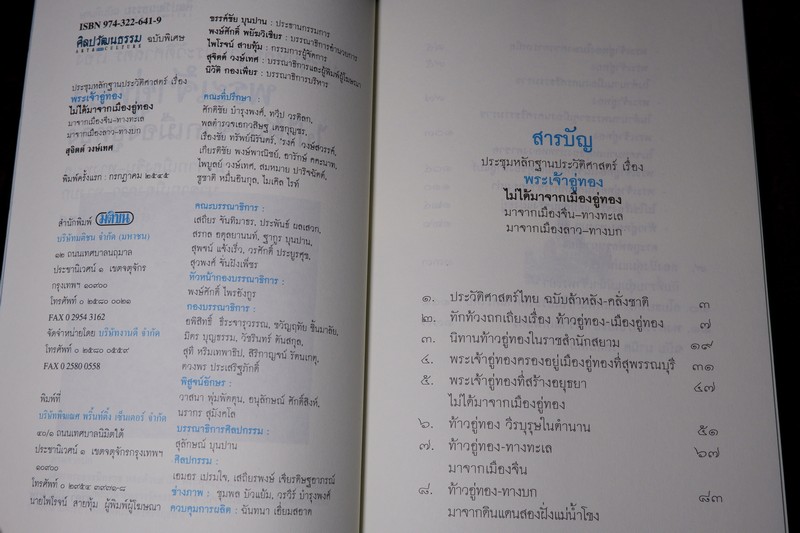 ISBN 974-322-641-9
ศิลปวัฒนธรรม ฉบับพิเศษ
ประชุมหลักฐานประวัติศาสตร์ เรื่อง
พระเจ้าอู่ทอง
ไม่ได้มาจากเมืองอู่ทอง
มาจากเมืองจีน-ทางทะเล
มาจากเมืองลาว-ทางบก
สุจิตต์ วงษ์เทศ
พิมพ์ครั้งแรก : กรกฎาคม ๒๕๔๕
สำนักพิมพ์ มติชน
บริษัทมติชน จำกัด (มหาชน)
๑๒ ถนนเทศบาลนฤมาล
ประชานิเวศน์ ๑ เขตจตุจักร
กรุงเทพฯ ๑๐๙๐๐
โทรศัพท์ ๐ ๒๕๘๐ ๐๐๒๑
FAX 0 2954 3162
จัดจำหน่ายโดย บริษัทงานดี จำกัด
โทรศัพท์ ๐ ๒๕๘๐ ๐๕๕๙
FAX 0 2580 0558
พิมพ์ที่
บริษัทพิฆเณศ พริ้นท์ติ้ง เซ็นเตอร์ จำกัด
๔๐/๑ ถนนเทศบาลนิมิตใต้
ประชานิเวศน์ ๑ เขตจตุจักรกรุงเทพฯ
๑๐๙๐๐
โทรศัพท์ ๐ ๒๙๕๔ ๙๙๙๖-๘
นายไพโรจน์ สายทุ้ม ผู้พิมพ์ผู้โฆษณา
ขรรค์ชัย บุนปาน : ประธานกรรมการ
พงษ์ศักดิ์ พยัฆวิเชียร : บรรณาธิการอำนวยการ
ไพโรจน์ สายทุ้ม : กรรมการผู้จัดการ
สุจิตต์ วงษ์เทศ : บรรณาธิการและผู้พิมพ์ผู้โฆษณา
นิวัติ กองเพียร : บรรณาธิการบริหาร
คณะที่ปรึกษา :
ศักดิชัย บำรุงพงศ์, ทวีป วรดิลก,
พลตำรวจเอกวสิษฐ เดชกุญชร,
เรืองชัย ทรัพย์นิรันดร์, วงศ์สวรรค์,
เกียรติชัย พงษ์พาณิชย์, อารักษ์ คคะนาท,
ไพบูลย์ วงษ์เทศ, สมหมาย ปาริจฉัตต์,
ชูชาติ หมื่นอินกุล, ไมเคิล ไรท์
คณะบรรณาธิการ :
เสถียร จันทิมาธร, ประพันธ์ ผลเสวก,
สรกล อดุลยานนท์, ฐากูร บุนปาน,
สุพจน์ แจ้งเร็ว, วรศักดิ์ ประยูรศุข,
สุวพงศ์ จั่นฝังเพ็ชร
หัวหน้ากองบรรณาธิการ :
พงษ์ศักดิ์ ไพรอังกูร
กองบรรณาธิการ :
อพิสิทธิ์ ธีระจารุวรรณ, ขวัญฤทัย ชื้นมาลัย,
มิตร บุญธรรม, วัชรินทร์ ตันสกุล,
สุที หริมเทพาธิป, สิริกาญจน์ รัตนเกตุ,
ดวงพร ประเสริฐภักดิ์
พิสูจน์อักษร :
วาสนา พุ่มพัดคุน, อนุลักษณ์ ศักดิ์สิงห์,
นรากร สุมังคโล
บรรณาธิการศิลปกรรม :
สุลักษณ์ บุนปาน
ศิลปกรรม :
เอมอร เปรมใจ, เสถียรพงษ์ เจียรดิษฐอาภรณ์
ช่างภาพ : ชุมพล บัวแย้ม, วรวีร์ บำรุงพงศ์
ควบคุมการผลิต : ฉันทนา เอี่ยมสอาด
สารบัญ
ประชุมหลักฐานประวัติศาสตร์ เรื่อง
พระเจ้าอู่ทอง
ไม่ได้มาจากเมืองอู่ทอง
มาจากเมืองจีน-ทางทะเล
มาจากเมืองลาว-ทางบก
๑. ประวัติศาสตร์ไทย ฉบับล้าหลัง-คลั่งชาติ ๓
๒. ทักท้วงถกเถียงเรื่อง ท้าวอู่ทอง-เมืองอู่ทอง ๗
๓. นิทานท้าวอู่ทองในราชสำนักสยาม ๑๙
๔. พระเจ้าอู่ทองครองอยู่เมืองอู่ทองที่สุพรรณบุรี ๓๑
๕. พระเจ้าอู่ทองที่สร้างอยุธยา ๔๗
ไม่ได้มาจากเมืองอู่ทอง
๖. ท้าวอู่ทอง วีรบุรุษในตำนาน ๕๑
๗. ท้าวอู่ทอง-ทางทะเล ๖๗
มาจากเมืองจีน
๘. ท้าวอู่ทอง-ทางบก ๘๓
มาจากดินแดนสองฝั่งแม่น้ำโขง